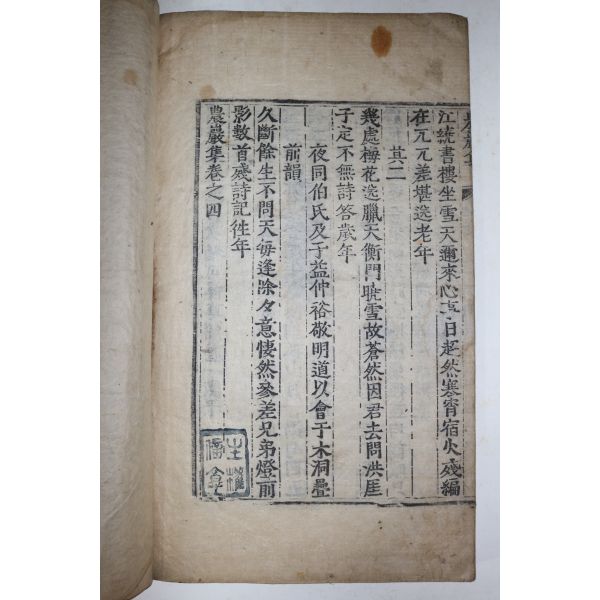 江繞書樓坐雪天邇來心事日超然寒宵宿火殘編
在兀兀差堪送老年
其二
幾處梅花送臘天衡門曉雪故蒼然因君去問洪厓
子定不無詩答歲年
夜同伯氏及子益仲裕敬明道以會于木洞疊
前韻
久斷餘生不問天每逢除夕意悽然參差兄弟燈前
影數首殘詩記徃年
農巖集卷之四